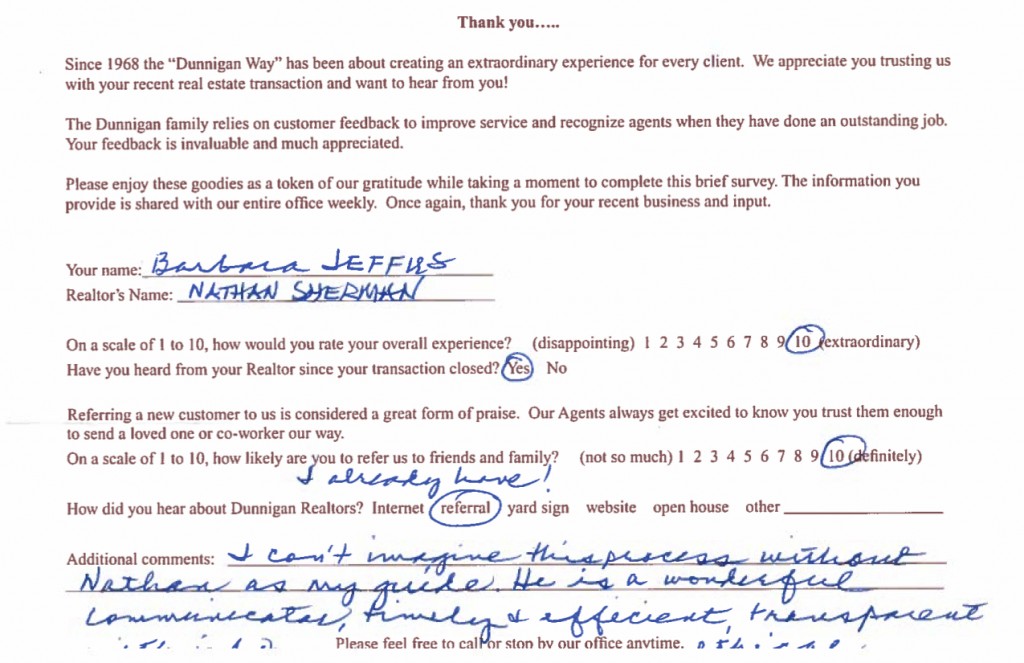 Thank you.....
Since 1968 the “Dunnigan Way” has been about creating an extraordinary experience for every client. We appreciate you trusting us
with your recent real estate transaction and want to hear from you!
The Dunnigan family relies on customer feedback to improve service and recognize agents when they have done an outstanding job.
Your feedback is invaluable and much appreciated.
Please enjoy these goodies as a token of our gratitude while taking a moment to complete this brief survey. The information you
provide is shared with our entire office weekly. Once again, thank you for your recent business and input.
Your name: Barbara JEFFUS
Realtor's Name: NATHAN SHERMAN
On a scale of 1 to 10, how would you rate your overall experience? (disappointing) 1 2 3 4 5 6 7 8 9 10 (extraordinary)
Have you heard from your Realtor since your transaction closed? Yes No
Referring a new customer to us is considered a great form of praise. Our Agents always get excited to know you trust them enough
to send a loved one or co-worker our way.
On a scale of 1 to 10, how likely are you to refer us to friends and family? (not so much) 1 2 3 4 5 6 7 8 9 10 (definitely)
I already have!
How did you hear about Dunnigan Realtors? Internet referral yard sign website open house other
Additional comments: I can't imagine this process without
Nathan as my guide. He is a wonderful
communicator, timely & efficient, transparent
Please feel free to call or stop by our office anytime.